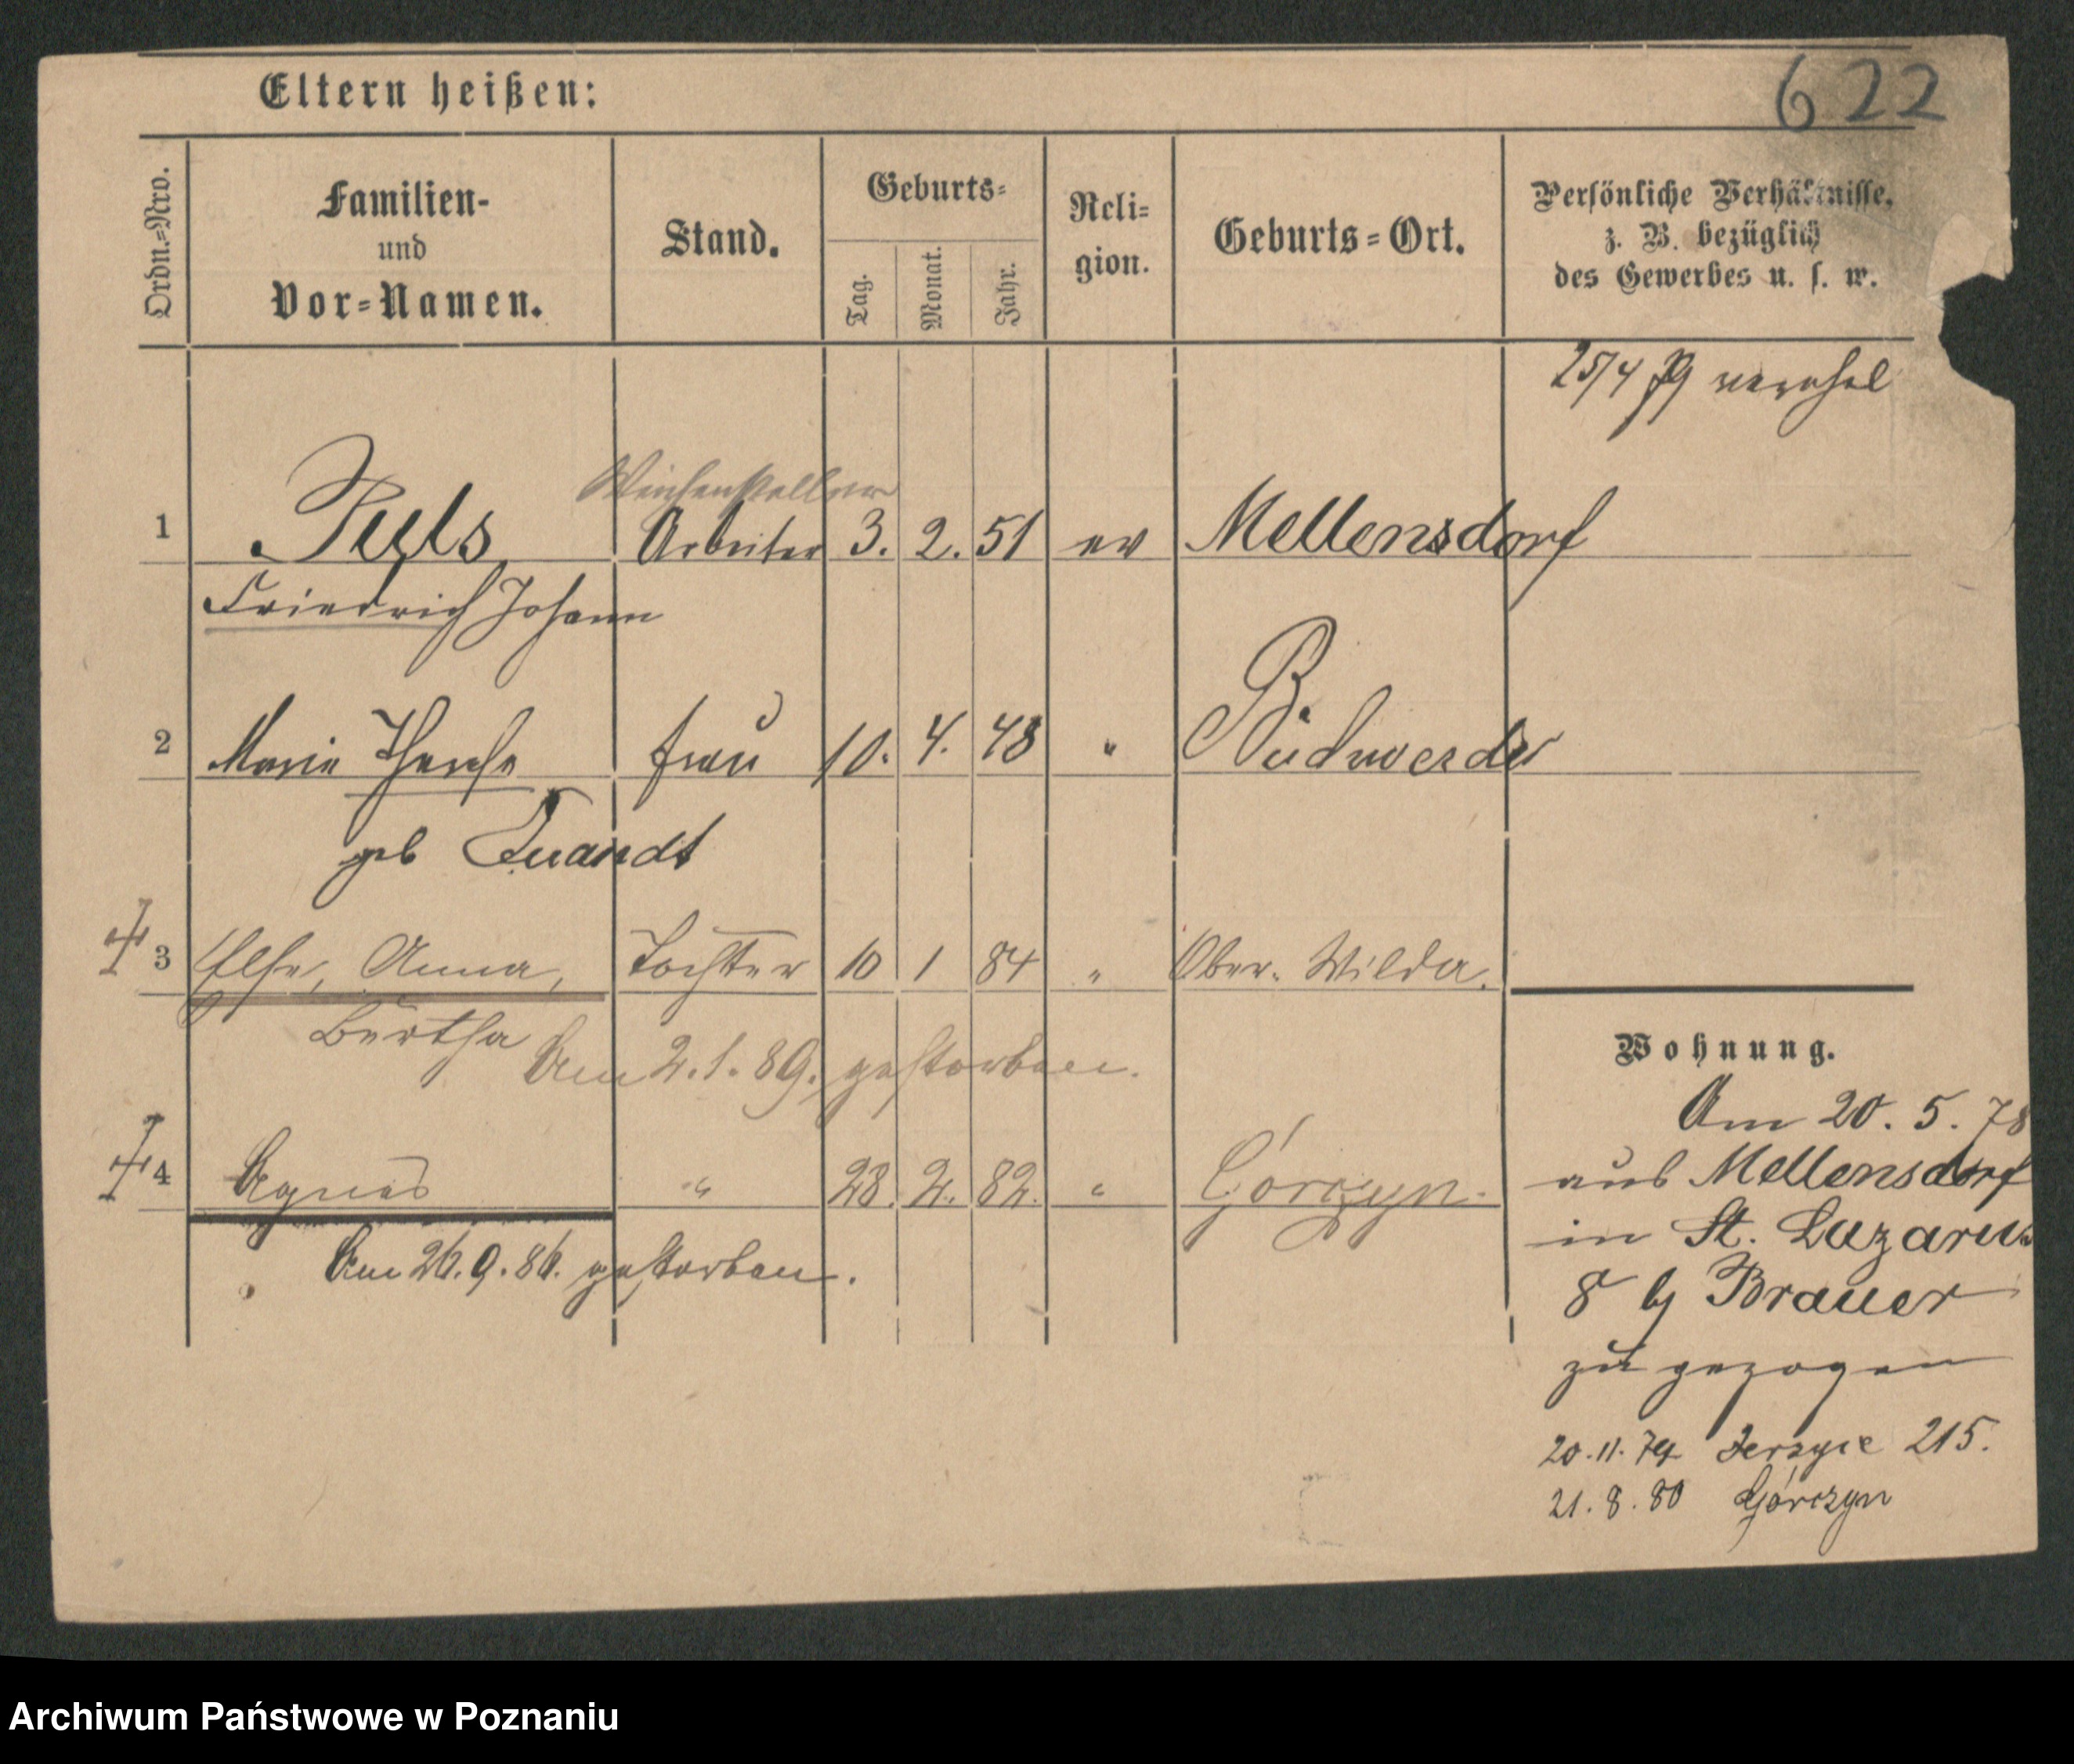 Eltern heißen:
622
Ordn.=Nro.
Familien-
und
Vor=Namen.
Stand.
Geburts=
Tag.
Monat.
Jahr.
Reli=
gion.
Geburts=Ort.
Persönliche Verhältnisse,
z. B. bezüglich
des Gewerbes u. s. w.
25/4 79
Weichensteller
1 Puls Arbeiter 3. 2. 51 ev Mellensdorf
Friedrich Johann
2 Marie Therese Frau 10. 4. 48 " Budwerder
geb Quandt
3 Else, Anna, Tochter 10 1 84 " Ober-Wilda.
Bertha
Am 2.1.89. gestorben.
4 Agnes " 28. 2. 82. " Górczyn.
Am 26.9.86. gestorben.
Wohnung.
Am 20. 5. 78
aus Mellensdorf
in St. Lazarus
8 bj Brauer
zu gezogen
20.11.79 Jerzyce 215.
21.8.80 Górczyn
Archiwum Państwowe w Poznaniu